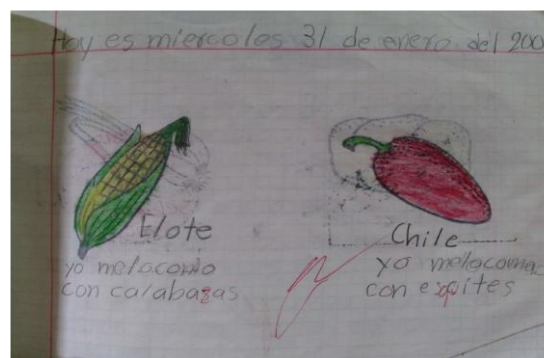 Hoy es miercoles 31 de enero del 200
Elote
yo melocomo
con calabazas
Chile
yo melocomo
con esqites